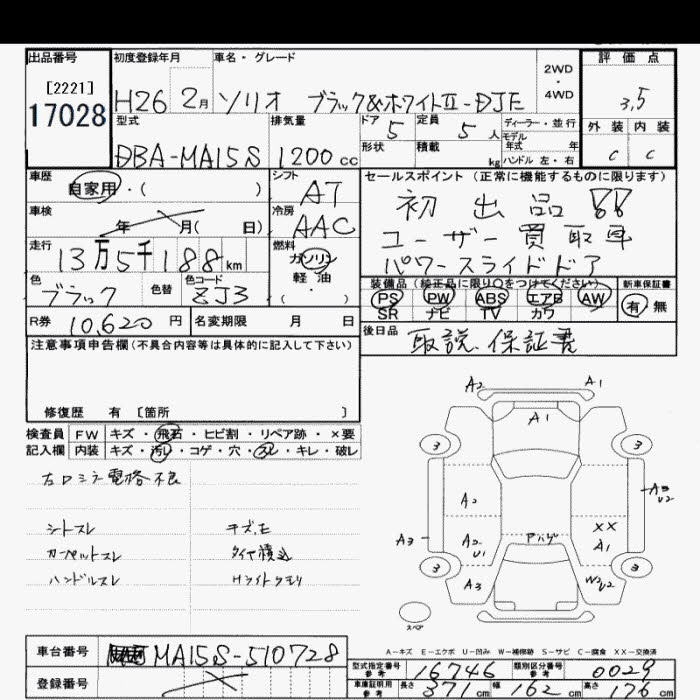 出品番号 初度登録年月 車名・グレード 2WD・4WD 評価点
[2221]
17028 H26 2月 ソリオ ブラック&ホワイトⅡ-DJE 3.5
型式 排気量 ドア 5 定員 5人 ディーラー・並行 外装 内装
モデル年式 年
DBA-MA15S 1200cc 形状 積載 kg ハンドル 左・右 C C
車歴 自家用・( ) シフト AT セールスポイント(正常に機能するものに限ります)
車検 年 月( 日) 冷房 AAC 初出品!!
走行 13万5千188km 燃料 ガソリン・軽油・( ) ユーザー買取車
パワースライドドア
色 ブラック 色替 色コード ZJ3 装備品(純正品に限り○をつけてください) 新車保証書
PS PW ABS エアB AW 有 無
SR ナビ TV カワ
R券 10,620円 名変期限 月 日 後日品 取説、保証書
注意事項申告欄(不具合内容等は具体的に記入して下さい)
修復歴 有 [箇所 ]
検査員 FW キズ・飛石・ヒビ割・リペア跡・×要
記入欄 内装 キズ・汚レ・コゲ・穴・スレ・キレ・破レ
左ロミラー電格不良
シートスレ キズ、モ
カーペットスレ タイヤ積込
ハンドルスレ Hライトクモリ
A2 A1
A1
3 3
A2 A3 U2
A3 A2 U1 アハゲ XX A1
3 3
A3 W2 U2
スペア
A-キズ E-エクボ U-凹み W-補修跡 S-サビ C-腐食 XX-交換済
車台番号 MA15S-510728
登録番号
型式指定番号 参考 16746 類別区分番号 参考 0029
車庫証明用 参考 長さ 371cm 幅 162cm 高さ 76cm